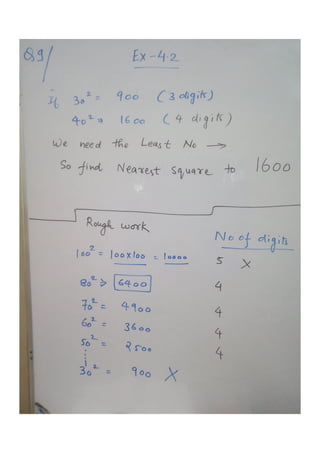 Q9/ Ex-4.2
if 30² = 900 (3 digits)
40² = 1600 (4 digits)
We need the Least No →
So find Nearest Square to 1600
Rough work
No of digits
100² = 100x100 = 10000 5 X
80² ⇒ 6400 4
70² = 4900 4
60² = 3600 4
50² = 2500 4
30² = 900 X